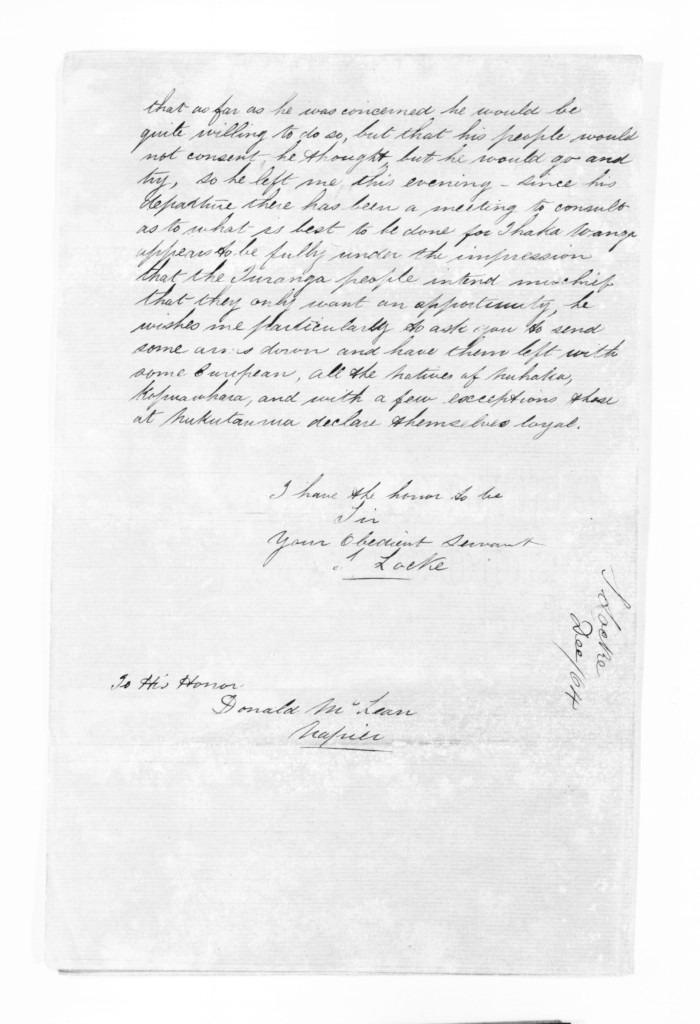 that as far as he was concerned, he would be
quite willing to do so, but that his people would
not consent, he thought, but he would go and
try, so he left me this evening - since his
departure there has been a meeting to consult
as to what is best to be done for Ihaka Wanga
appears to be fully under the impression
that the Turanga people intend mischief
that they only want an opportunity, he
wishes me particularly to ask you to send
some arms down and have them left with
some European, all the Natives of Nuhaka,
and with a few exceptions those
at declare themselves loyal.
I have the honor to be
Sir
Your Obedient Servant
S Locke
To His Honor
Donald McLean
Napier
S Locke
Dec/64